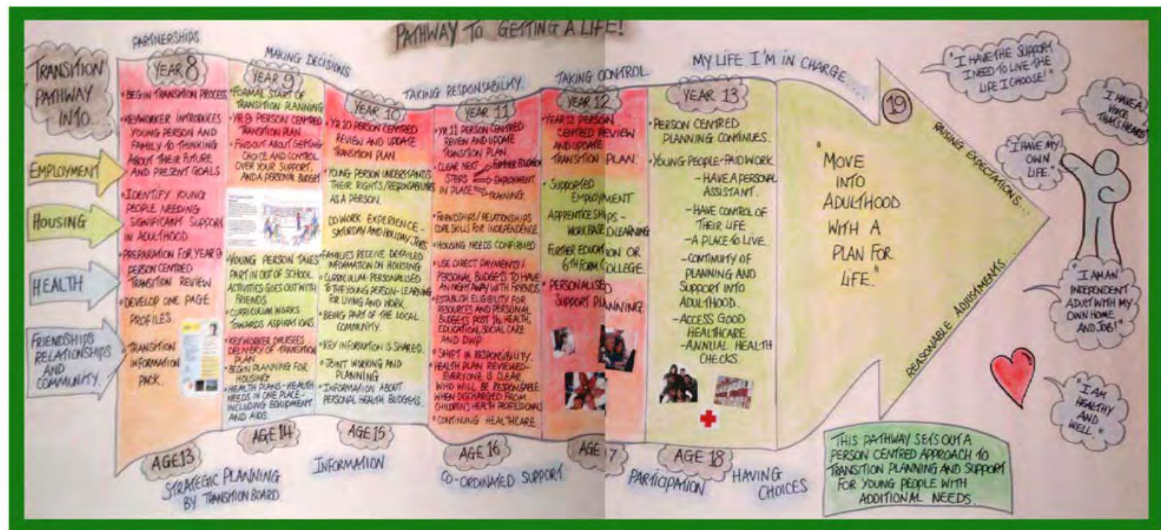 PATHWAY TO GETTING A LIFE!
TRANSITION
PATHWAY
IN 10
EMPLOYMENT
HOUSING
HEALTH
FRIENDSHIPS
RELATIONSHIPS
AND
COMMUNITY.
PARTNERSHIPS
YEAR 8
• BEGIN TRANSITION PROCESS
• KEYWORKER INTRODUCES
YOUNG PERSON AND
FAMILY TO THINKING
ABOUT THEIR FUTURE
AND PRESENT GOALS
• IDENTIFY YOUNG
PEOPLE NEEDING
SIGNIFICANT SUPPORT
IN ADULTHOOD.
• PREPARATION FOR YEAR 9
PERSON CENTRED
TRANSITION REVIEW
• DEVELOP ONE PAGE
PROFILES.
• TRANSITION
INFORMATION
PACK.
AGE 13
MAKING DECISIONS
YEAR 9
• FORMAL START OF
TRANSITION PLANNING
• YR 9 PERSON CENTRED
TRANSITION PLAN
• FIND OUT ABOUT GETTING
CHOICE AND CONTROL
OVER YOUR SUPPORT
AND A PERSONAL BUDGET
• YOUNG PERSON TAKES
PART IN OUT OF SCHOOL
ACTIVITIES GOES OUT WITH
FRIENDS
• CURRICULUM WORKS
TOWARDS ASPIRATIONS.
• KEYWORKER OVERSEES
DELIVERY OF TRANSITION
PLAN
• BEGIN PLANNING FOR
HOUSING
• HEALTH PLANS - HEALTH
NEEDS IN ONE PLACE -
INCLUDING EQUIPMENT
AND AIDS.
AGE 14
YEAR 10
• YR 10 PERSON CENTRED
REVIEW AND UPDATE
TRANSITION PLAN.
• YOUNG PERSON UNDERSTANDS
THEIR RIGHTS/RESPONSIBILITIES
AS A PERSON.
DO WORK EXPERIENCE -
SATURDAY AND HOLIDAY JOBS
• FAMILIES RECEIVE DETAILED
INFORMATION ON HOUSING
• CURRICULUM - PERSONALISED
TO THE YOUNG PERSON - LEARNING
FOR LIVING AND WORK.
• BEING PART OF THE LOCAL
COMMUNITY.
• KEY INFORMATION IS SHARED.
• JOINT WORKING AND
PLANNING
• INFORMATION ABOUT
PERSONAL HEALTH BUDGETS.
AGE 15
TAKING RESPONSIBILITY.
YEAR 11
• YR 11 PERSON CENTRED
REVIEW AND UPDATE
TRANSITION PLAN.
• CLEAR NEXT FURTHER EDUCATION
STEPS EMPLOYMENT
IN PLACE TRAINING.
• FRIENDSHIPS/RELATIONSHIPS
CORE SKILLS FOR INDEPENDENCE.
• HOUSING NEEDS CONFIRMED
• USE DIRECT PAYMENTS/
PERSONAL BUDGETS TO HAVE
AN NIGHT AWAY WITH FRIENDS.
• ESTABLISH ELIGIBILITY FOR
RESOURCES AND PERSONAL
BUDGETS POST 16 HEALTH,
EDUCATION, SOCIAL CARE
AND DWP
• SHIFT IN RESPONSIBILITY.
• HEALTH PLAN REVIEWED -
EVERYONE IS CLEAR
WHO WILL BE RESPONSIBLE
WHEN DISCHARGED FROM
CHILDREN'S HEALTH PROFESSIONALS
• CONTINUING HEALTHCARE
AGE 16
TAKING CONTROL
YEAR 12
• YEAR 12 PERSON
CENTRED REVIEW
AND UPDATE
TRANSITION PLAN.
• SUPPORTED
EMPLOYMENT
APPRENTICESHIPS -
WORK BASED LEARNING
FURTHER EDUCATION OR
6TH FORM COLLEGE.
• PERSONALISED
SUPPORT PLANNING.
AGE 17
MY LIFE I'M IN CHARGE....
YEAR 13
• PERSON CENTRED
PLANNING CONTINUES.
• YOUNG PEOPLE - PAID WORK
- HAVE A PERSONAL
ASSISTANT.
- HAVE CONTROL OF
THEIR LIFE
- A PLACE TO LIVE.
- CONTINUITY OF
PLANNING AND
SUPPORT INTO
ADULTHOOD.
- ACCESS GOOD
HEALTHCARE
- ANNUAL HEALTH
CHECKS.
AGE 18
STRATEGIC PLANNING
BY TRANSITION BOARD
INFORMATION
CO-ORDINATED SUPPORT
PARTICIPATION
HAVING
CHOICES
19
"MOVE
INTO
ADULTHOOD
WITH A
PLAN FOR
LIFE."
RAISING EXPECTATIONS...
REASONABLE ADJUSTMENTS
"I HAVE THE SUPPORT
I NEED TO LIVE THE
LIFE I CHOOSE!"
"I HAVE A
VOICE
THAT'S HEARD"
"I HAVE MY
OWN
LIFE."
"I AM AN
INDEPENDENT
ADULT WITH MY
OWN HOME
AND JOB!"
"I AM
HEALTHY
AND
WELL."
THIS PATHWAY SETS OUT A
PERSON CENTRED APPROACH TO
TRANSITION PLANNING AND SUPPORT
FOR YOUNG PEOPLE WITH
ADDITIONAL NEEDS.